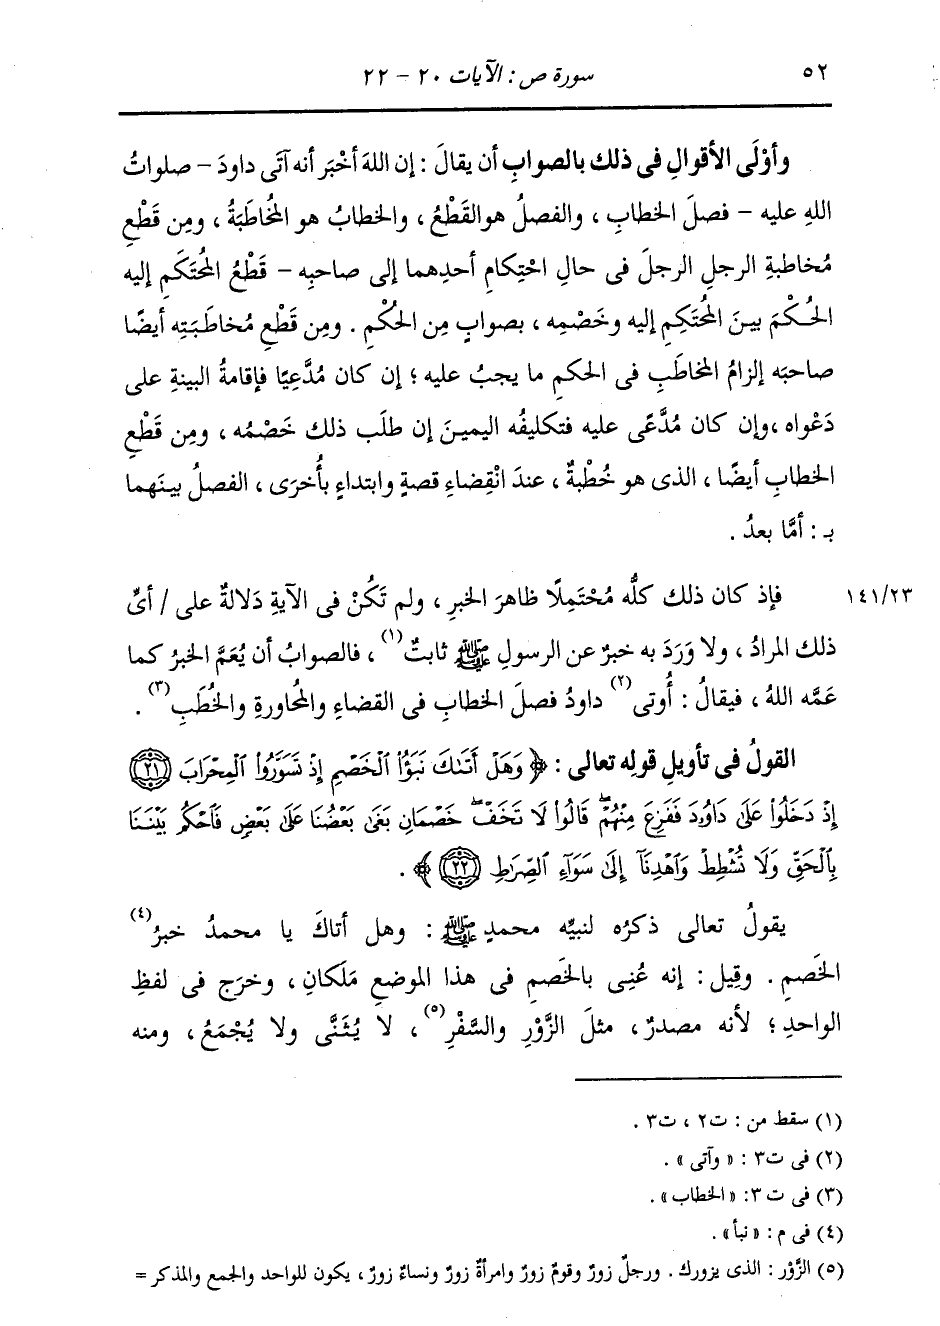 ٥٢
سورة ص : الآيات ٢٠ – ٢٢
وأوْلَى الأقوالِ فى ذلك بالصوابِ أن يقالَ : إن اللهَ أخْبَر أنه آتَى داودَ – صلواتُ
اللهِ عليه – فصلَ الخطابِ ، والفصلُ هو القَطْعُ ، والخطابُ هو المُخاطَبَةُ ، ومِن قَطْعِ
مُخاطبةِ الرجلِ الرجلَ فى حالِ احْتِكامِ أحدِهما إلى صاحبِه – قَطْعُ المُحتَكَمِ إليه
الحُكْمَ بينَ المُحْتَكِمِ إليه وخَصْمِه ، بصوابٍ مِن الحُكْمِ . ومِن قَطْعِ مُخاطَبَتِه أيضًا
صاحبَه إلزامُ المُخاطَبِ فى الحكمِ ما يجبُ عليه ؛ إن كان مُدَّعِيًا فإقامةُ البينةِ على
دَعْواه ، وإن كان مُدَّعًى عليه فتكليفُه اليمينَ إن طلَب ذلك خَصْمُه ، ومِن قَطْعِ
الخطابِ أيضًا ، الذى هو خُطْبةٌ ، عندَ انْقِضاءِ قصةٍ وابتداءٍ بأُخرَى ، الفصلُ بينَهما
بـ : أمَّا بعدُ .
فإذ كان ذلك كلُّه مُحْتَمِلًا ظاهرَ الخبرِ ، ولم تَكُنْ فى الآيةِ دَلالةٌ على / أىِّ
١٤١/٢٣
ذلك المرادُ ، ولا وَرَدَ به خبرٌ عن الرسولِ ﷺ ثابتٌ(١) ، فالصوابُ أن يُعَمَّ الخبرُ كما
عَمَّه اللهُ ، فيقالُ : أُوتى(٢) داودُ فصلَ الخطابِ فى القضاءِ والمُحاورةِ والخُطَبِ(٣) .
القولُ فى تأويلِ قولِه تعالى : ﴿ وَهَلْ أَتَىٰكَ نَبَؤُا۟ ٱلْخَصْمِ إِذْ تَسَوَّرُوا۟ ٱلْمِحْرَابَ ٢١
إِذْ دَخَلُوا۟ عَلَىٰ دَاوُۥدَ فَفَزِعَ مِنْهُمْ ۖ قَالُوا۟ لَا تَخَفْ ۖ خَصْمَانِ بَغَىٰ بَعْضُنَا عَلَىٰ بَعْضٍ فَٱحْكُم بَيْنَنَا
بِٱلْحَقِّ وَلَا تُشْطِطْ وَٱهْدِنَآ إِلَىٰ سَوَآءِ ٱلصِّرَٰطِ ٢٢ ﴾ .
يقولُ تعالى ذكرُه لنبيِّه محمدٍ ﷺ : وهل أتاكَ يا محمدُ خبرُ(٤)
الخَصمِ . وقِيل : إنه عُنِى بالخَصمِ فى هذا الموضعِ مَلَكانِ ، وخرَج فى لفظِ
الواحدِ ؛ لأنه مصدرٌ ، مثلَ الزَّوْرِ والسَّفْرِ(٥) ، لا يُثَنَّى ولا يُجْمَعُ ، ومنه
(١) سقط من : ت٢ ، ت٣ .
(٢) فى ت٣ : « وآتى » .
(٣) فى ت ٣: « الخطاب » .
(٤) فى م : « نبأ » .
(٥) الزَّوْر : الذى يزورك . ورجلٌ زورٌ وقومٌ زورٌ وامرأةٌ زورٌ ونساءٌ زورٌ ، يكون للواحد والجمع والمذكر =